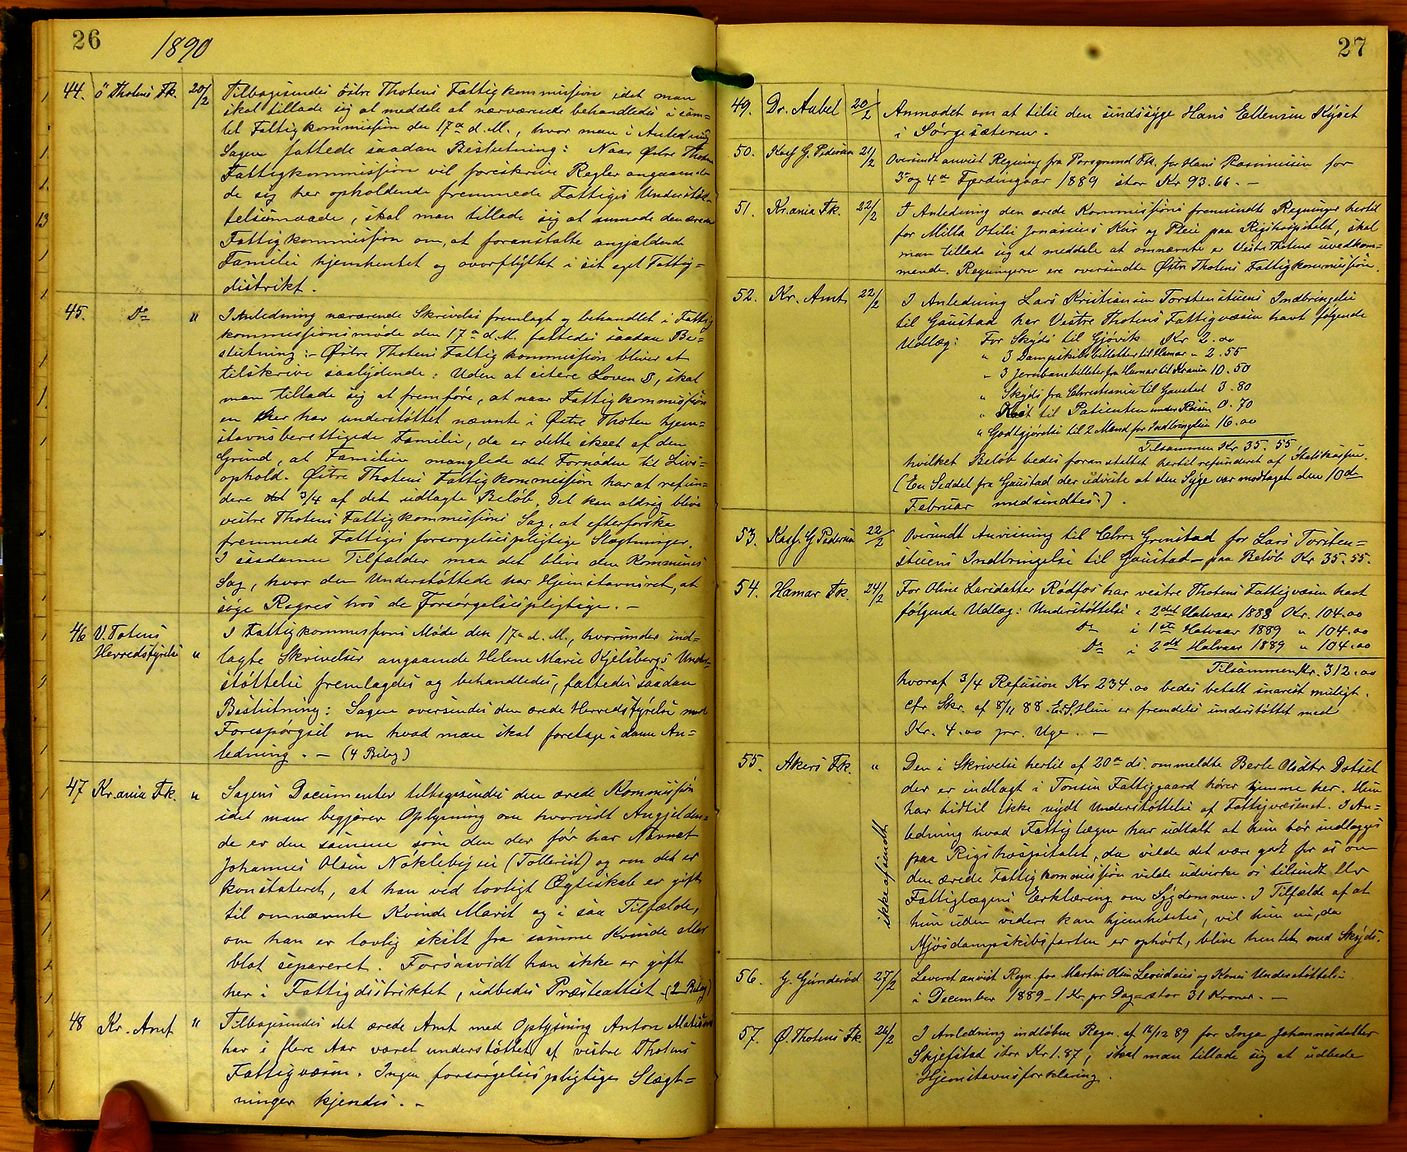 26
1890
44. Ö Thotens Fk. 20/2 Tilbagesendes östre Thotens Fattigkommission idet man
skal tillade sig at meddele at nærværende behandledes i sam-
let Fattigkommission den 17de d. M., hvor man i Anledning
Sagen fattede saadan Beslutning: Naar Östre Thotens
Fattigkommission vil foreskrive Regler angaaende
de sig her opholdende fremmede Fattiges Understöt-
telsesmaade, skal man tillade sig at anmode den ærede
Fattigkommission om, at foranstalte angjældende
Familie hjemhentet og overflyttet i sit eget Fattig=
distrikt.
45. Do " I Anledning nærværende Skrivelse fremlagt og behandlet i Fattig
kommissionsmöde den 17de d. M. fattedes saadan Be=
slutning:- Östre Thotens Fattigkommission bliver at
tilskrive saalydende: Uden at citere Loven §, skal
man tillade sig at fremföre, at naar Fattigkommission
en her har understöttet nævnte i Östre Thoten hjem=
stavnsberettigede Familie, da er dette skeet af den
Grund, at Familien manglede det Fornödne til Livs=
ophold. Östre Thotens Fattigkommission har at refun=
dere det 3/4 af det udlagte Belöb. Det kan aldrig blive
vestre Thotens Fattigkommissions Sag, at efterforske
fremmede Fattiges forsørgelsespligtige Slægtninger.
I saadanne Tilfælder maa det blive den Kommunes
Sag, hvor den Understöttede har Hjemstavnsret, at
søge Regres hos de Forsørgelsespligtige. -
46 V. Totens
Herredsstyrelse " I Fattigkommissions Möde den 17de d. M., hvorunder ind=
lagte Skrivelser angaaende Helene Marie Kjelsbergs Under-
stöttelse fremlagdes og behandledes, fattedes saadan
Beslutning: Sagen oversendes den ærede Herredsstyrelse med
Forespørgsel om hvad man skal foretage i denne An=
ledning. - (4 Bilag)
47 Kr.ania Fk. " Sagens Documenter tilbagesendes den ærede Kommission
idet man begjærer Oplysning om hvorvidt Angjelden=
de er den samme som den der før har Navnet
Johannes Olsen Noklebyeie (Tollerud) og om det er
konstateret, at han ved lovligt Ægteskab er gift
til omnævnte Kvinde Marit og i saa Tilfælde,
om han er lovlig skilt fra samme Kvinde eller
blot separeret. Forsaavidt han ikke er gift
her i Fattigdistriktet, udbedes Præsteattest. (2 Bilag)
48 Kr. Amt " Tilbagesendes det ærede Amt med Oplysning Anton
har i flere Aar været understöttet af vestre Thotens
Fattigvæsen. Ingen forsørgelsespligtige Slægt=
ninger kjendes. -
27
49. Dr. Aubel 20/2 Anmodet om at tilse den sindssyge Hans Ellensen Kyset
i Sørgesæteren.
50. Kasf. G. Pedersen 21/2 Oversendt anvist Regning fra Porsgrund Fk. for Hans Rasmussen for
3die og 4de Fjerdingaar 1889 stor Kr 93.66. -
51. Kr.ania Fk. 22/2 I Anledning den ærede Kommissions fremsendte Regninger hertil
for Milla Otilie Jonassens Kur og Pleie paa Rigshospitalet, skal
man tillade sig at meddele at omnævnte er Vestre Thoten uvedkom=
mende. Regningerne ere oversendte Østre Thotens Fattigkommission.
52. Kr. Amt 22/2 I Anledning Lars Kristiansen Torstenstuens Indbringelse
til Gaustad har Vestre Thotens Fattigvæsen havt følgende
Udlæg: For Skyds til Gjøvik Kr 2.00
" 3 Dampskibsbilletter til Hamar " 2.55
" 3 Jernbanebilleter fra Hamar til Kr.ania 10.50
" Skyds fra Christiania til Gaustad 3.80
" Kost til Patienten under Reisen 0.70
" Godtgjørelse til 2 Mand for Indbringelsen 16.00
Tilsammen Kr 35.55
hvilket Beløb bedes foranstaltet hertil refunderet af Statskassen.
(En Seddel fra Gaustad der udviste at den Syge var modtaget den 10de
Februar medsendtes.)
53. Kasf. G Pedersen 22/2 Oversendt Anvisning til Chr. Grinstad for Lars Torsten=
stuens Indbringelse til Gaustad - paa Beløb Kr 35.55.
54. Hamar Fk. 24/2 For Oline Larsdatter Rødfos har vestre Thotens Fattigvæsen havt
følgende Udlæg: Understöttelse i 2det Halvaar 1888 Kr. 104.00
Do i 1ste Halvaar 1889 " 104.00
Do i 2det Halvaar 1889 " 104.00
Tilsammen Kr. 312.00
hvoraf 3/4 Refusion Kr 234.00 bedes betalt snarest muligt.
cfr Skr. af 8/11 88. E.S. Hun er fremdeles understöttet med
Kr. 4.00 pr. Uge. -
55. Akers Fk. " Den i Skrivelse hertil af 20de ds. ommeldte Berte Olsdtr Dotset
der er indlagt i Tonsen Fattiggaard hører hjemme her. Hun
har hidtil ikke nydt Understöttelse af Fattigvæsenet. I An=
ledning hvad Fattiglægen har udtalt at hun bør indlægges
paa Rigshospitalet, da vilde det være godt for os om
den ærede Fattigkommission vilde udvirke os tilsendt Hr
Fattiglægens Erklæring om Sygdommen. I Tilfælde af at
hun uden videre kan hjemhentes, vil hun nu, da
Mjøsdampskibsfarten er ophørt, blive hentet med Skyds.
ikke afsendt
56. G. Gundersöd 27/2 Leveret anvist Regn. for Martin Olsen og Kones Understöttelse
i December 1889 - 1 Kr pr Dag = stor 31 Kroner. -
57. Ø. Thotens Fk. 26/2 I Anledning indløben Regn. af 16/12 89 for Inga Johannesdatter
Skjefstad stor Kr 1.87, skal man tillade sig at udbede
Hjemstavnsforklaring.